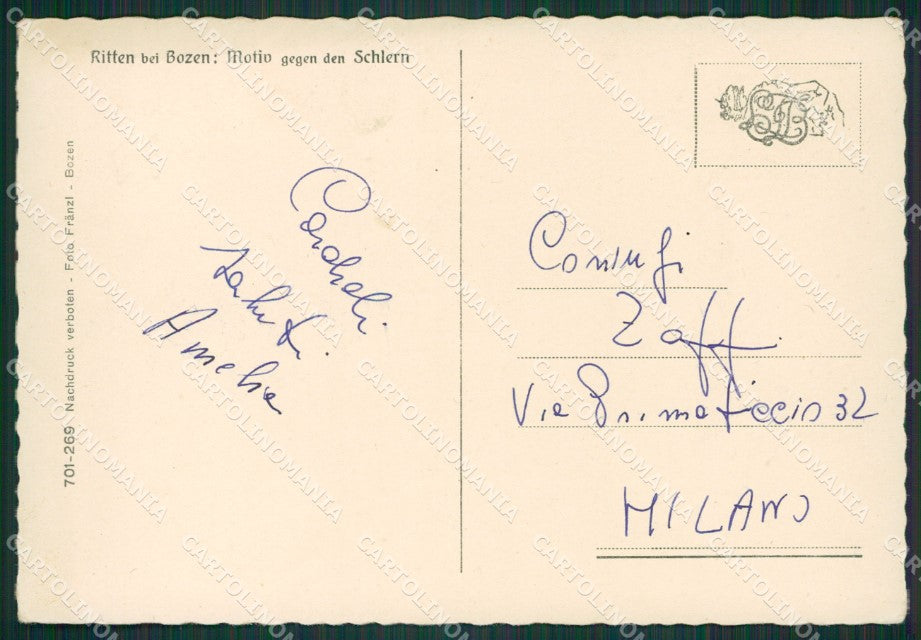 Ritten bei Bozen: Motiv gegen den Schlern
701-269 Nachdruck verboten - Foto Fränzl - Bozen
Cordiali
saluti
Amelia
Coniugi
Zaffi
Via Primaticcio 32
MILANO
CARTOLINOMANIA